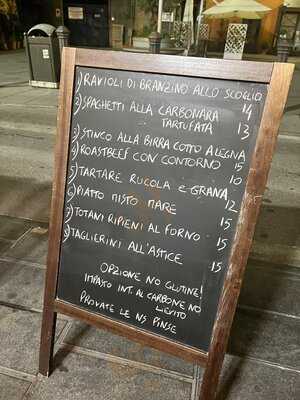 1) RAVIOLI DI BRANZINO ALLO SCOGLIO 14
2) SPAGHETTI ALLA CARBONARA
TARTUFATA 13
3) STINCO ALLA BIRRA COTTO A LEGNA 15
4) ROASTBEEF CON CONTORNO 10
5) TARTARE RUCOLA E GRANA 12
6) PIATTO MISTO MARE 15
7) TOTANI RIPIENI AL FORNO 15
8) TAGLIERINI ALL'ASTICE 15
OPZIONE NO GLUTINE!
IMPASTO INT. AL CARBONE NO
LIEVITO
PROVATE LE NS PINSE